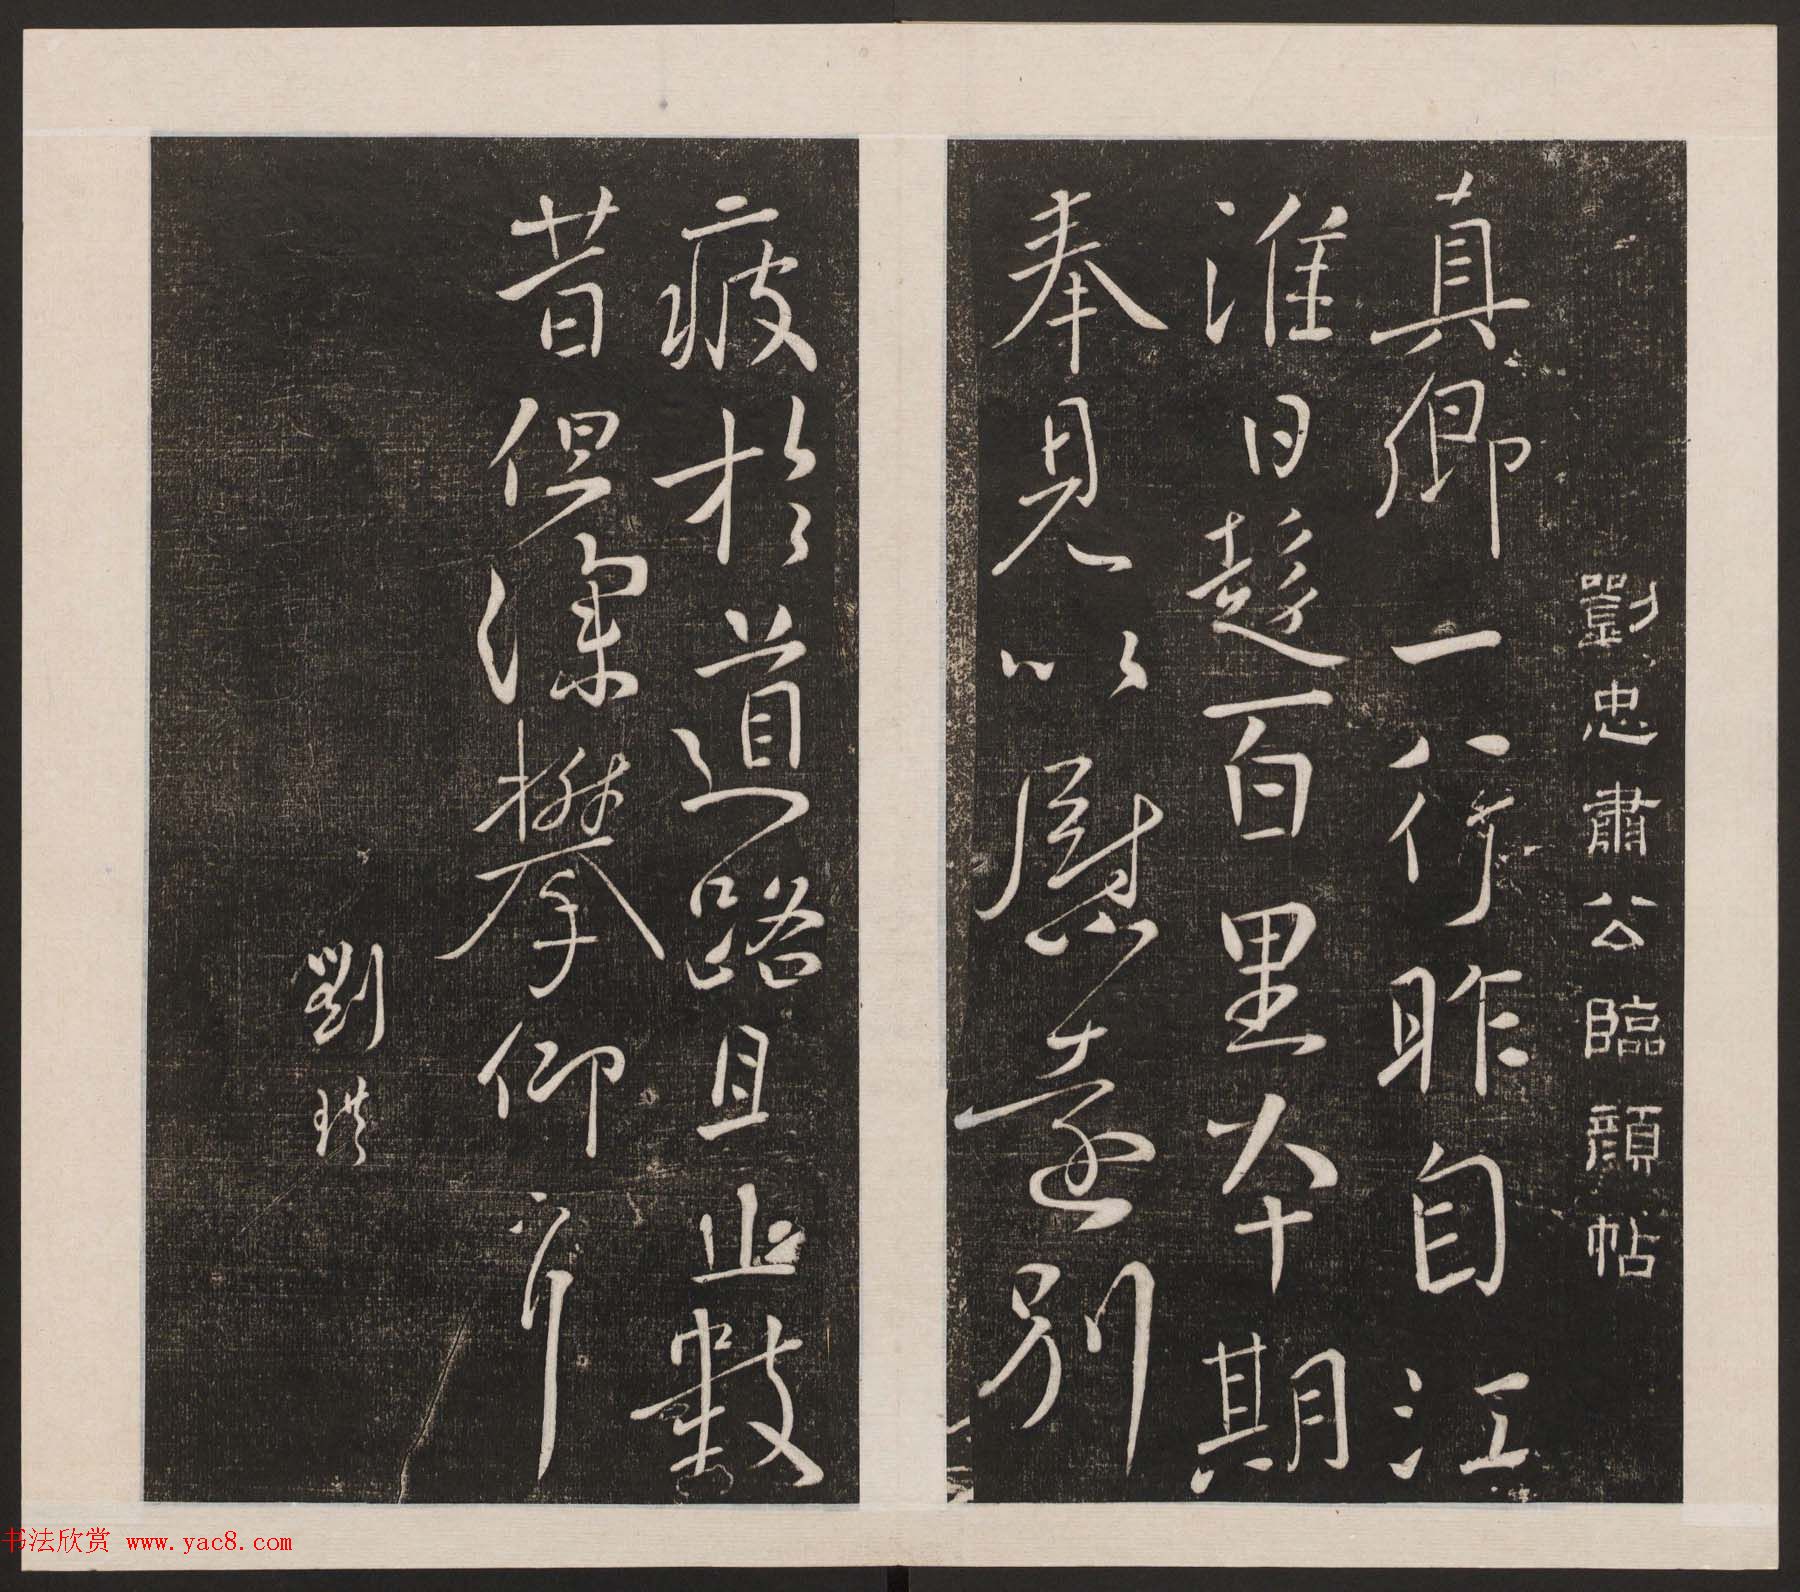 劉忠肅公臨顏帖
真卿一行昨自江
淮日趍百里本期
奉見以慰遠別
疲於道路且止數
昔但深攀仰耳
劉珙
书法欣赏 www.yac8.com